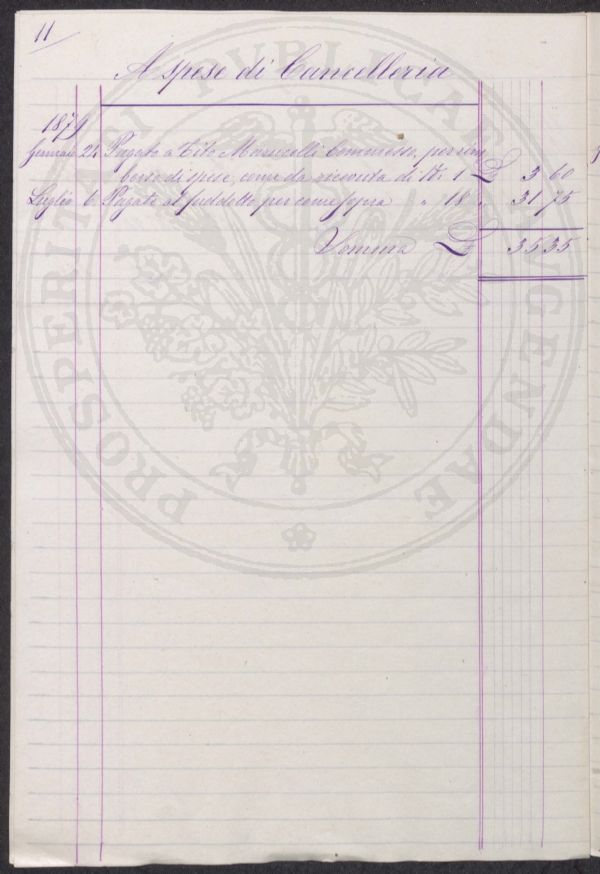 11
A spese di Cancelleria
1879
Gennaio 24 Pagate a Tito Commesso, per rim
borso di spese, come da ricevuta di N. 1 L 3 60
Luglio 6 Pagate al suddetto per come sopra " 18 " 31 75
Somma L 35 35
PROSPERITATI PVBLICAE AVGENDAE